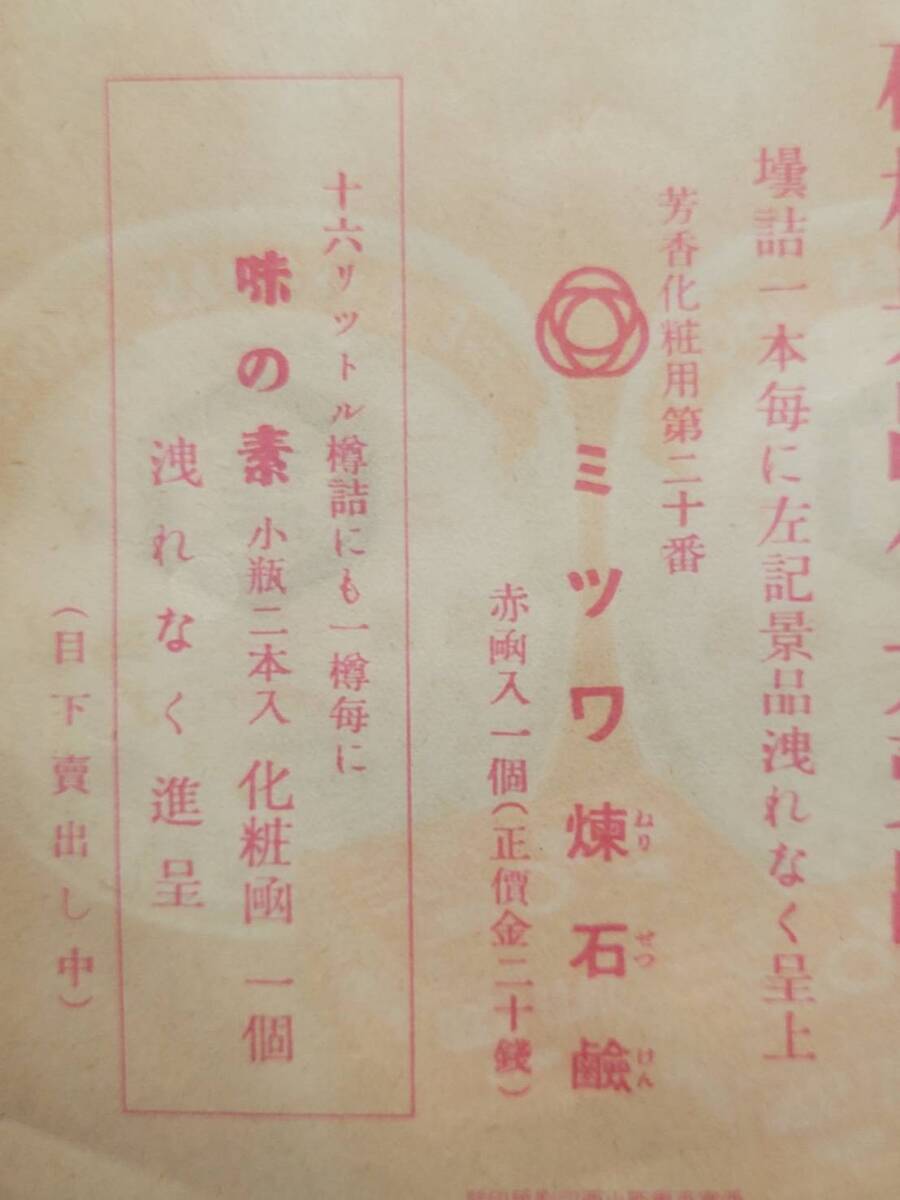 壜詰一本毎に左記景品洩れなく呈上
芳香化粧用第二十番
ミツワ煉石鹼
ねり せつ けん
赤凾入一個(正價金二十錢)
十六リットル樽詰にも一樽毎に
味の素 小瓶二本入 化粧凾 一個
洩れなく進呈
(目下賣出し中)